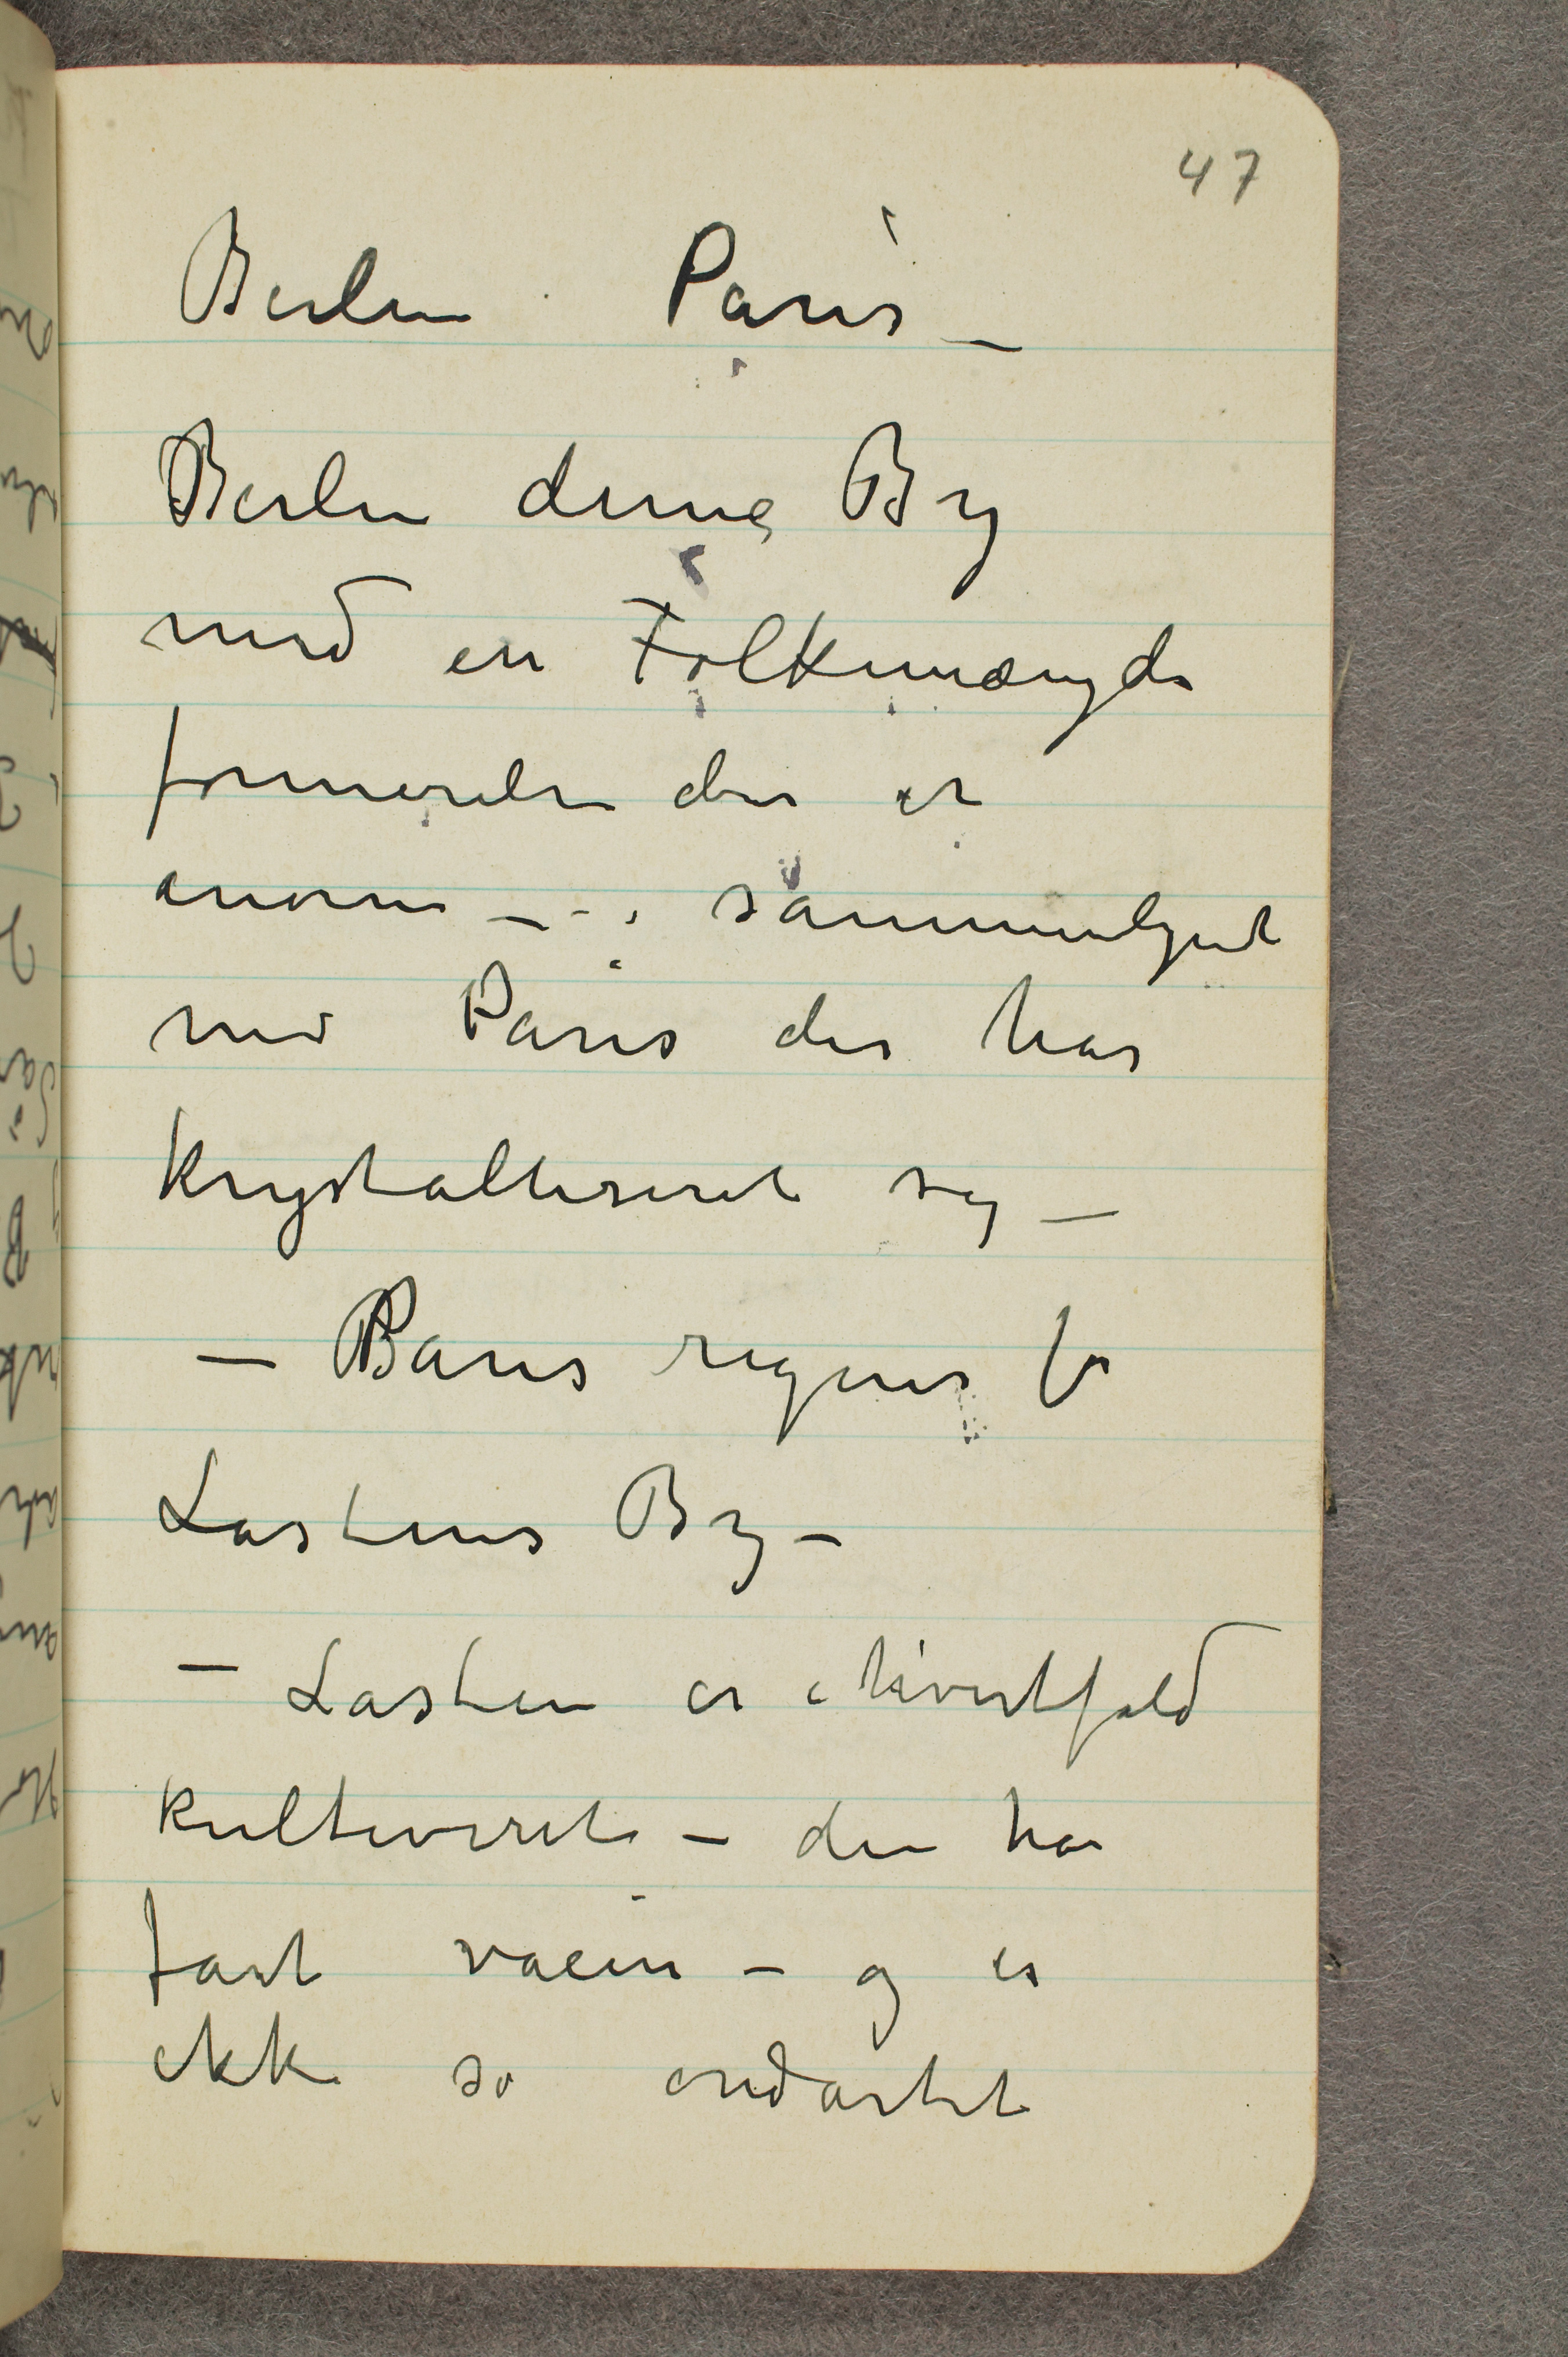 47
Berlin Paris –
Berlin denne By
med en Folkemængde
formerelse der er
enorm – – i sammenlignet
med Paris der har
krystalliseret sig –
– Paris regnes for
Lastens By –
– Lasten er i hvertfald
kultiveret – den har
fast – og er
ikke så ondartet